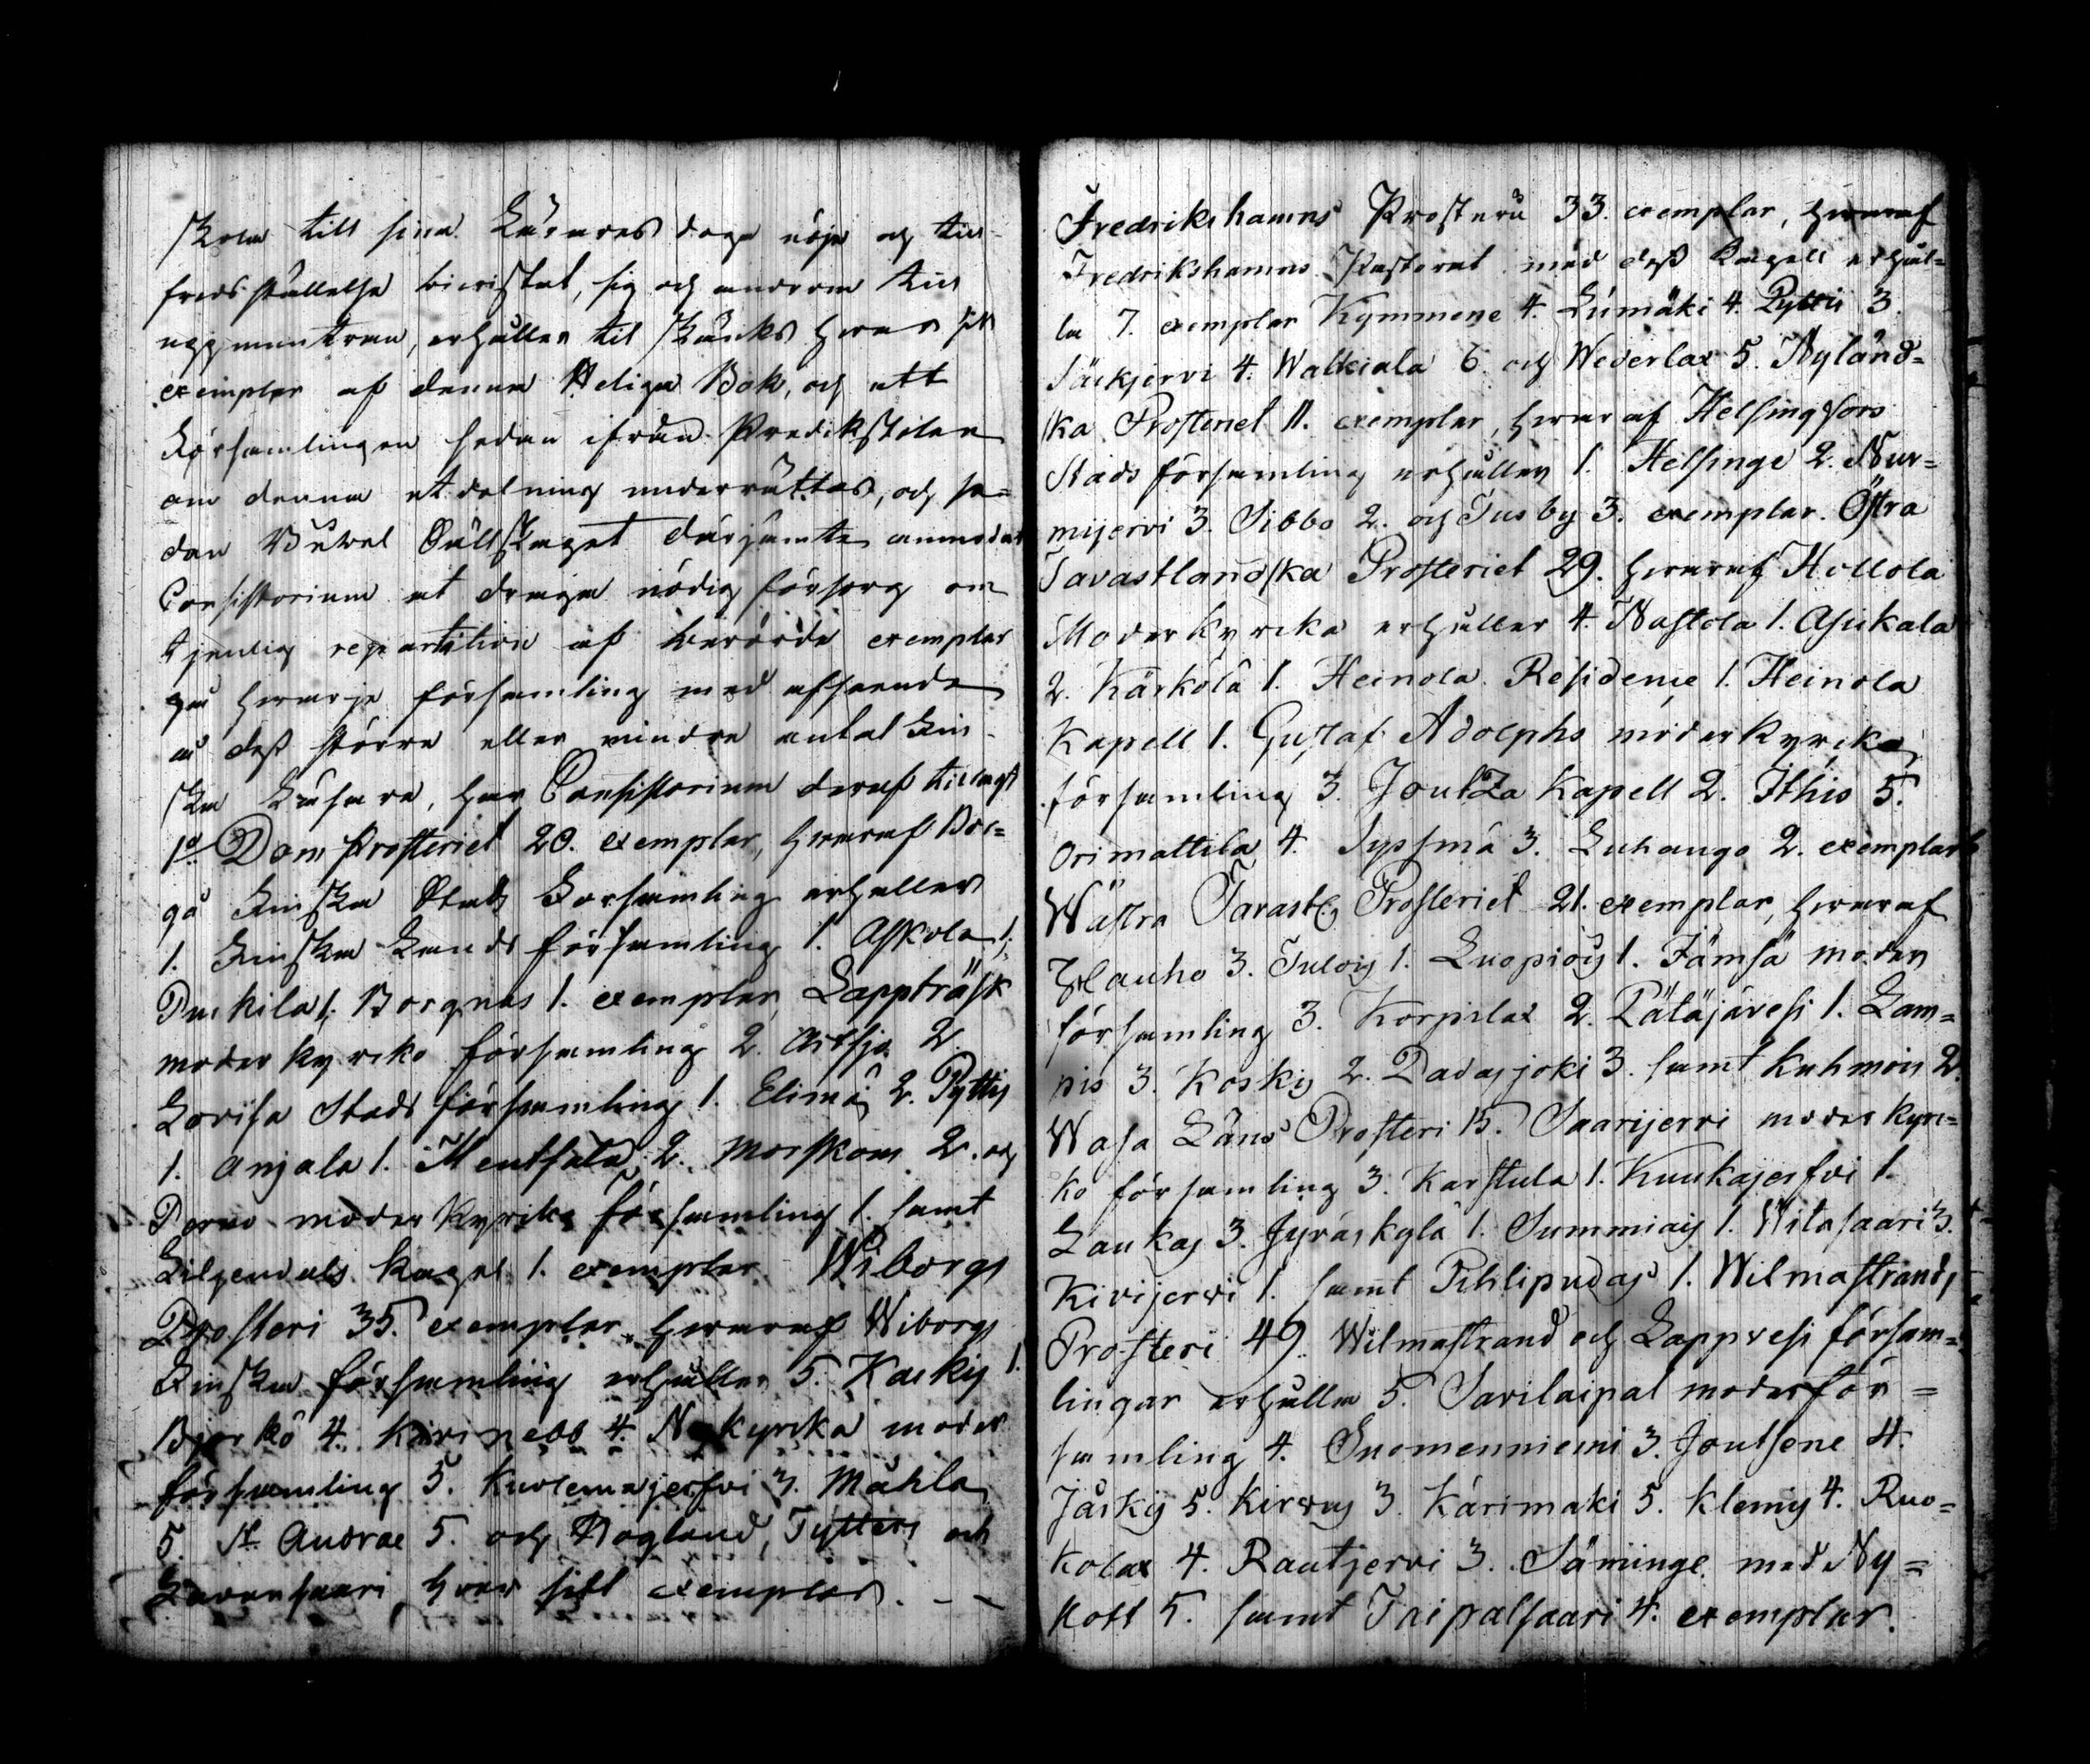 skola till sina Lärares doga nöje och till-
fredsställelse bivistat, sig och androm till
uppmuntran, erhåller til skänks hvar sitt
exemplar af denna Heliga Bok, och att
Församlingen sedan ifrån Predikstolen
om denna utdelning underrättas, och se=
dan Bibel Sällskapet därjämte anmodat
Consistorium at draga nödig försorg om
tjenlig repartition af berörde exemplar
på hvarje församling med afseende
å dess större eller mindre antal Fin-
ska Läsare, har Consistorium deraf tillagt
1o Dom Prosteriet 20. exemplar, hvaraf Bor=
gå Finska Stads Församling erhåller
1. Finska Lands församling 1. Askola 1;
Puckila 1; Borgnäs 1. exemplar, Lappträsk
moder kyrko församling 2. Artsjö 2.
Lovisa Stads församling 1. Elimä 2. Pyttis
1. Anjala 1. Mentsälä 2. Morskom 2. och
Perno moder kyrko församling 1. samt
Liljendals kapel 1. exemplar Wiborgs
Prosteri 35. exemplar hvaraf Wiborgs
Finska församling erhåller 5. Kackis 1.
Björkö 4. Kivinebb 4. Nykyrka moder
församling 5. Kuolemajerfvi 3. Måhla
5. St. Andrae 5. och Hogland, Tytters och
Lavansaari hvar sitt exemplar. - -
Fredrikshamns Prosteri 33. exemplar, hvaraf
Fredrikshamns Pastorat med dess Kapell erhål=
la 7. exemplar Kymmene 4. Lúmäki 4. Pyttis 3.
Säckjervi 4. Walkiala 6. och Wederlax 5. Nyländ=
ska Prosteriet 11. exemplar, hvaraf Helsingfors
Stads församling erhåller 1. Helsinge 2. Nur=
mijervi 3. Sibbo 2. och Tusby 3. exemplar. Östra
Tavastlandska Prosteriet 29. hvaraf Hollola
Moderkyrka erhåller 4. Nastola 1. Asikala
2. Kärkölä 1. Heinola Residence 1. Heinola
Kapell 1. Gustaf Adolphs moderkyrko
församling 3. Joutza Kapell 2. Ithis 5.
Orimattila 4. Syssmä 3. Luhango 2. exemplar
Wästra Tavastl. Prosteriet 21. exemplar, hvaraf
Hauho 3. Tulois 1. Luopiois 1. Jämsä moder
församling 3. Korpilax 2. Pätäjävesi 1. Lam=
pis 3. Koskis 2. Padasjoki 3. samt Kuhmois 2.
Wasa Läns Prosteri 15. Saarijervi moder kyr=
ko församling 3. Karstula 1. Kuukajerfvi 1.
Laukas 3. Jyväskylä 1. Summiais 1. Witasaari 3.
Kivijervi 1. samt Pihlipudas 1. Wilmastrands
Prosteri 49. Wilmastrand och Lappvesi försam=
lingar erhålla 5. Savilaipal moderför=
samling 4. Suomenniemi 3. Joutsene 4.
Jäskis 5. Kirvus 3. Kärimäki 5. Klemis 4. Ruo=
kolax 4. Rautjervi 3. Säminge med Ny=
slott 5. samt Taipalsaari 4. exemplar.